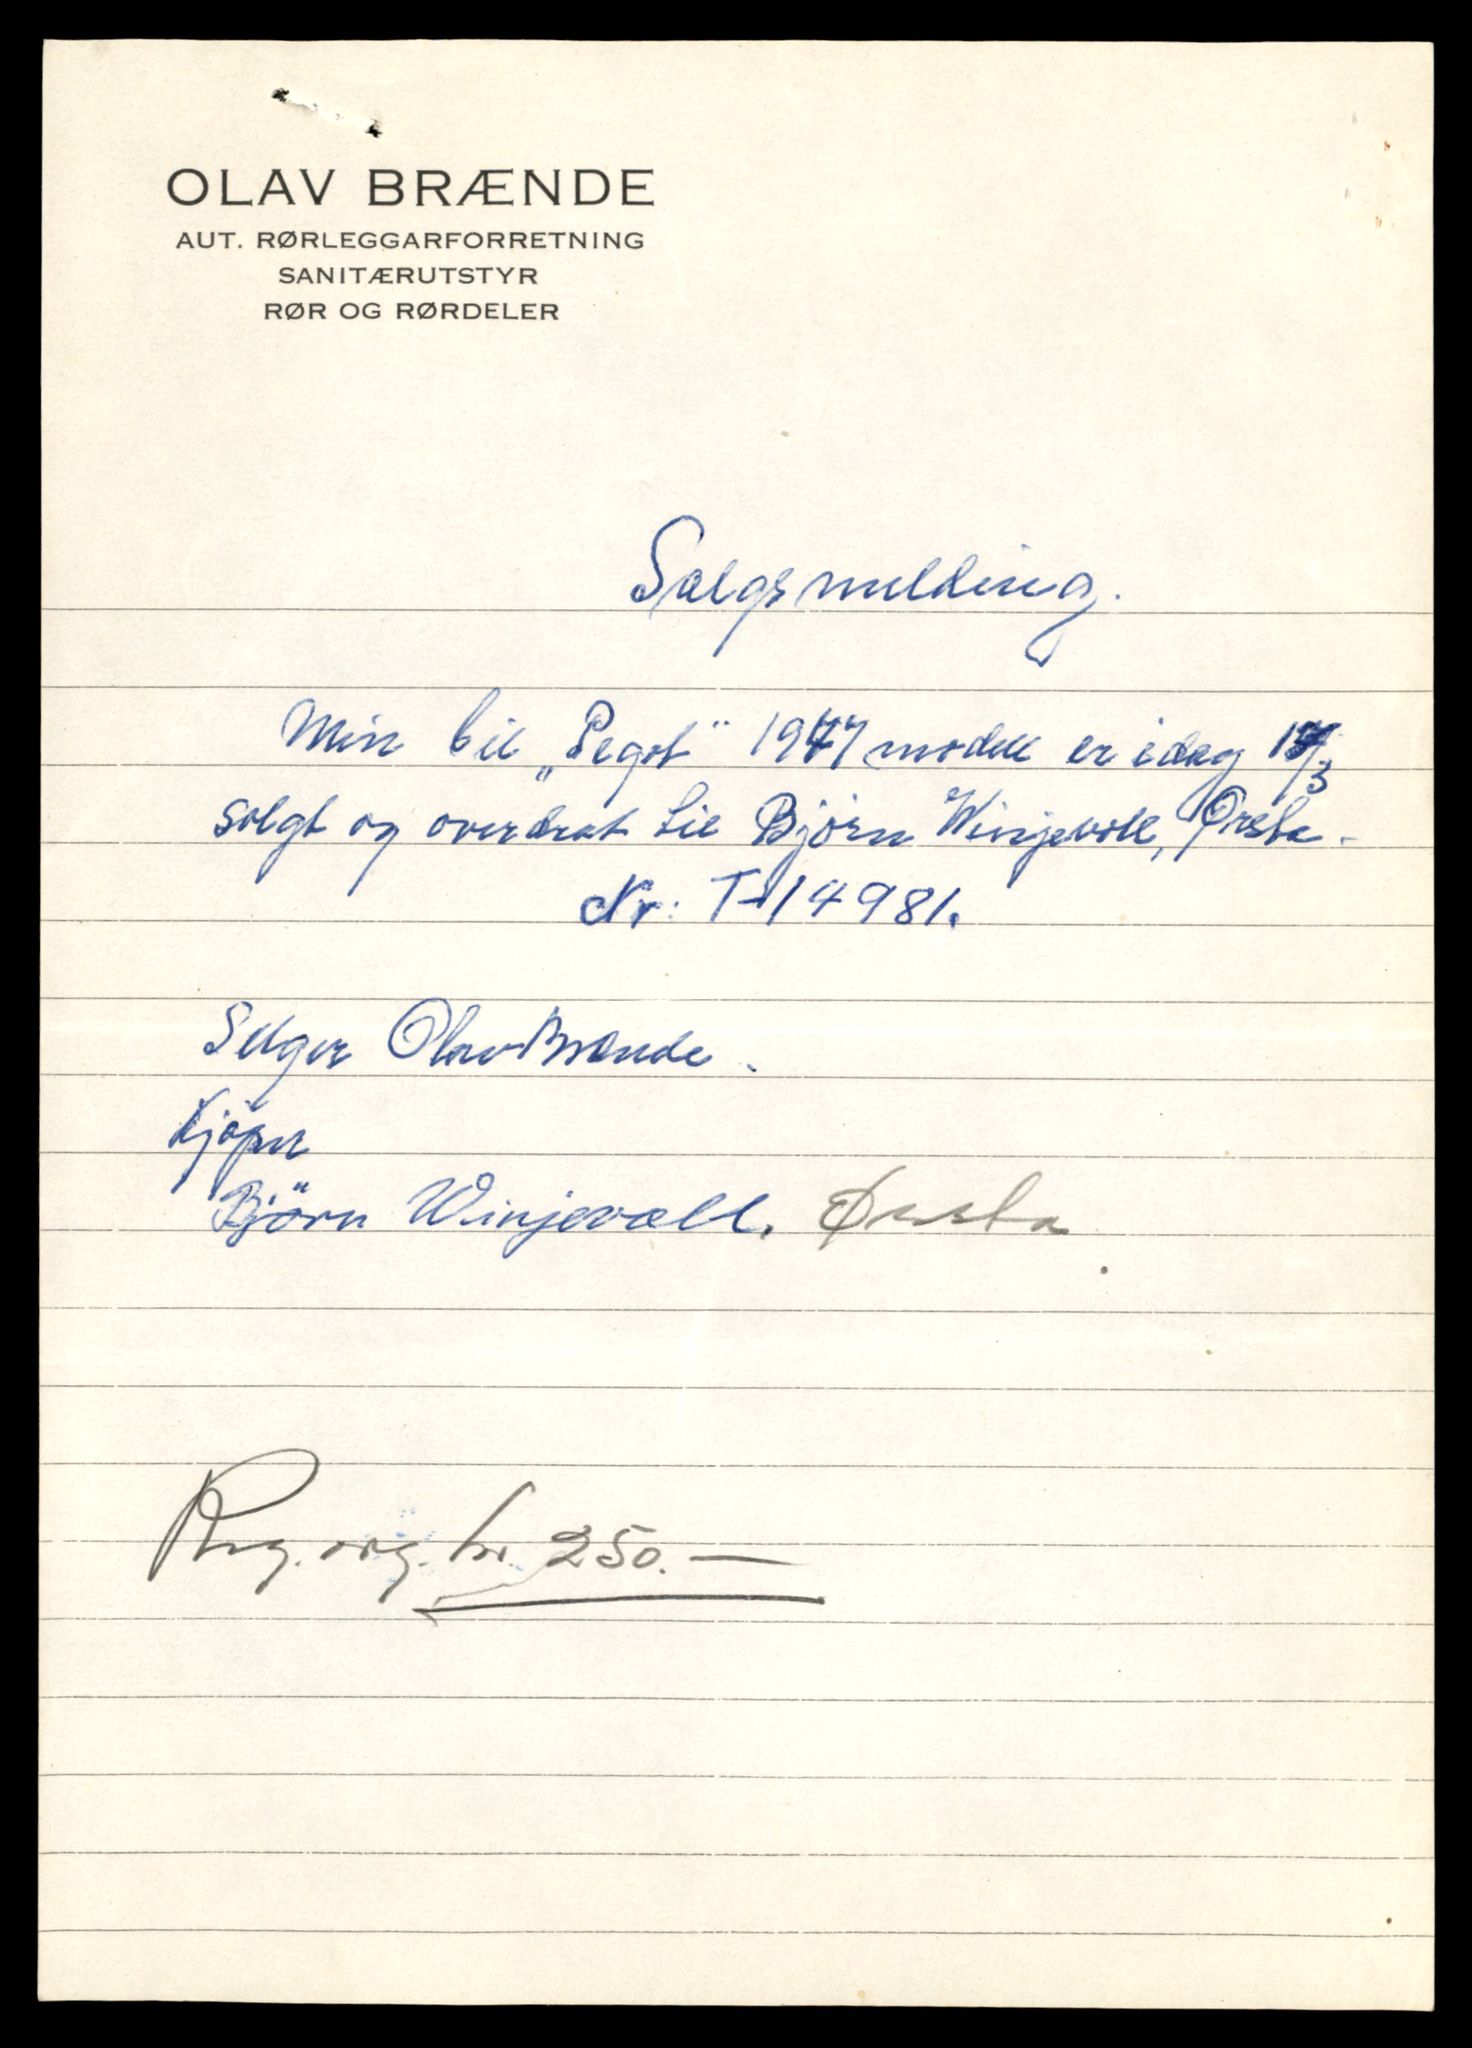 OLAV BRÆNDE
AUT. RØRLEGGARFORRETNING
SANITÆRUTSTYR
RØR OG RØRDELER
Salgsmelding.
Min bil „Pegot" 1947 modell er idag
solgt og overdrat til Bjørn Winjevoll, Ørsta.
Nr: T-14981.
Selger Olav Brænde.
Kjøper
Björn Winjevoll. Ørsta
kr. 250.—